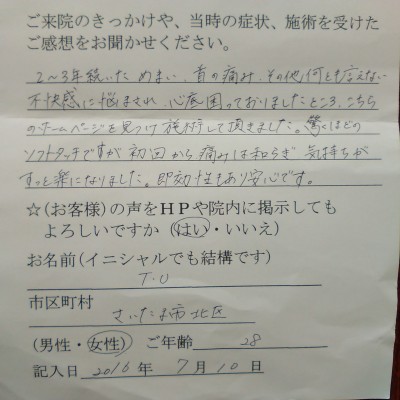 ご来院のきっかけや、当時の症状、施術を受けた
ご感想をお聞かせください。
2～3年続いた めまい、首の痛み、その他何とも言えない
不快感に悩まされ、心底困っておりましたところ、こちら
のホームページを見つけ施術して頂きました。驚くほどの
ソフトタッチですが 初回から痛みは和らぎ 気持ちが
すっと楽になりました。即効性もあり安心です。
☆(お客様)の声をＨＰや院内に掲示しても
よろしいですか(はい・いいえ)
お名前(イニシャルでも結構です)
T.U
市区町村
さいたま市北区
(男性・女性) ご年齢 28
記入日 2016年 7月 10日